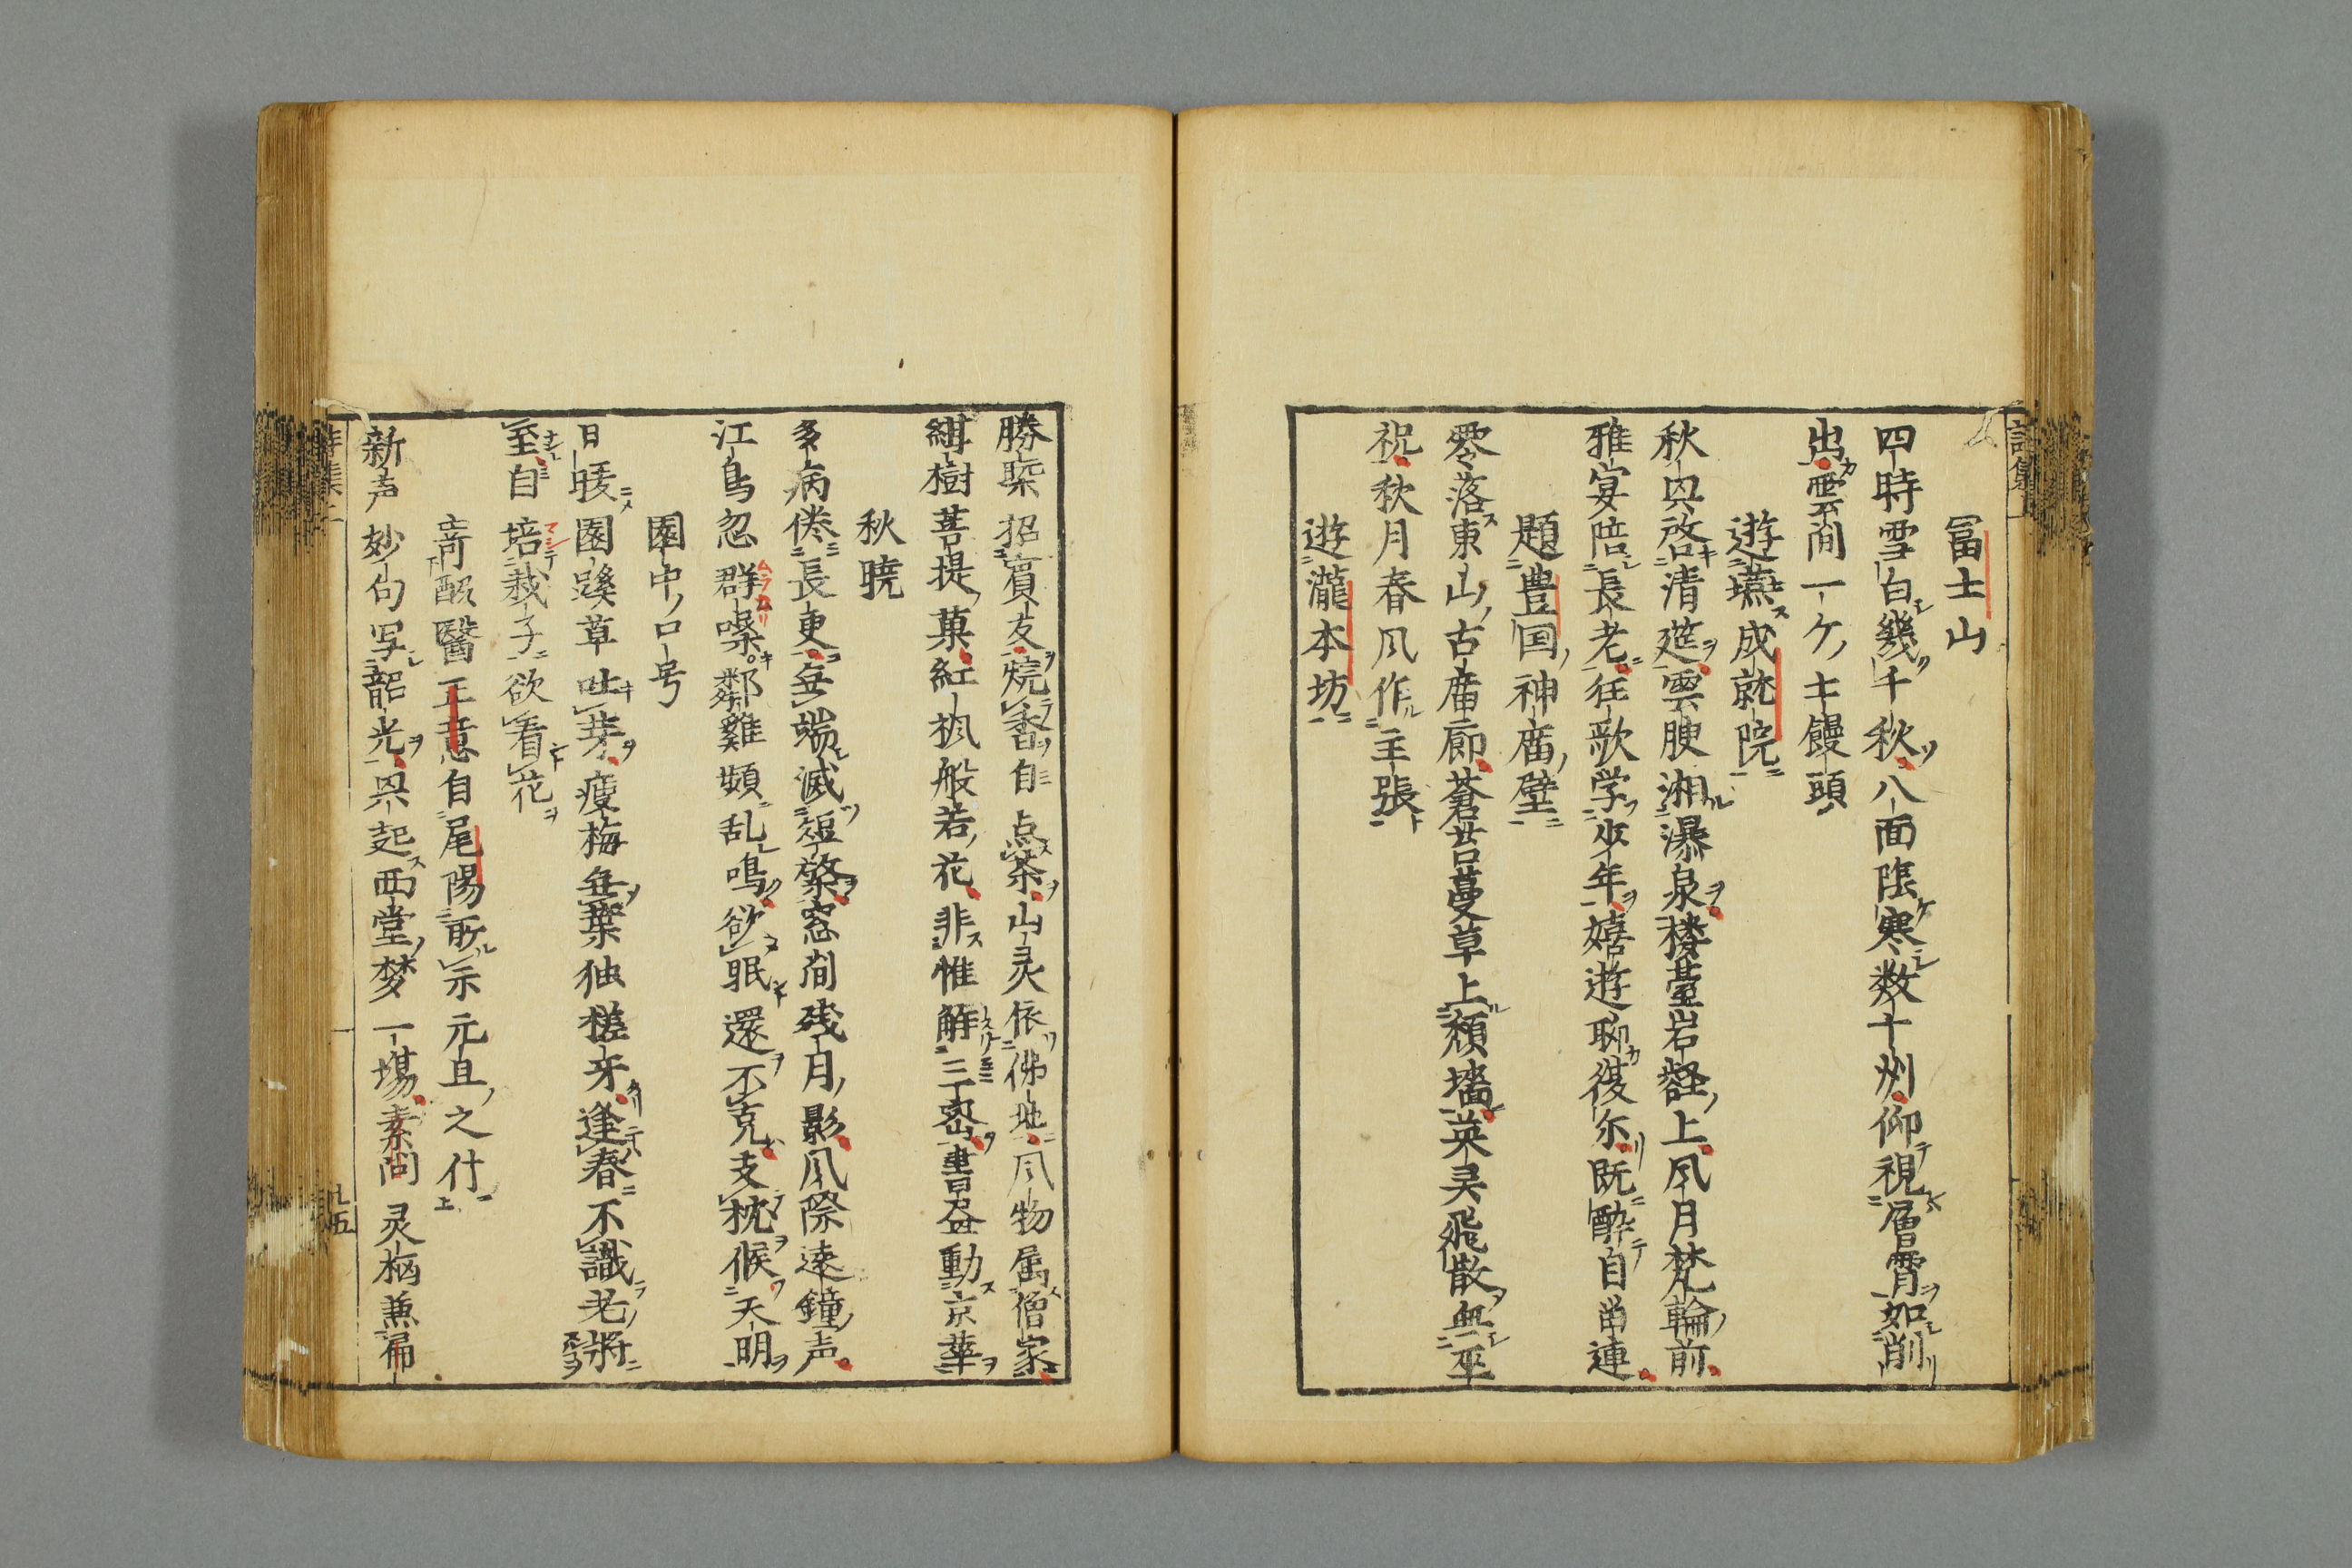 冨士山
四時雪白幾千秋八面障寒数十州仰視層霄如削
出雲間一ケキ饅頭
遊燕成就院
秋興啓清筵雲腴湘瀑泉楼臺岩壑上凬月梵輪前
雅宴陪長老狂歌学少年嬉遊聊復尓既酔自留連
題豊国神庿壁
零落東山古庿廊蒼苔蔓草上頽墻英灵飛散無巫
祝秋月春凬作主張
遊瀧本坊
勝槩招賓友焼香自点茶山灵依佛地凬物属僧家
紺樹菩提菓紅楓般若花非惟解三密書盈動京華
秋曉
多病倦長更無端滅短檠窓間残月影凬際遠鐘声
江鳥忽群噪鄰雞頻乱鳴欲眠還不克支枕候天明
園中口号
日暖園蹊草吐芽瘦梅無葉独槎牙逢春不識老將
至自培栽子欲看花
奇酘醫正意自尾陽所示元旦之什
新声妙句写韶光興起西堂梦一場素問灵柩兼扁